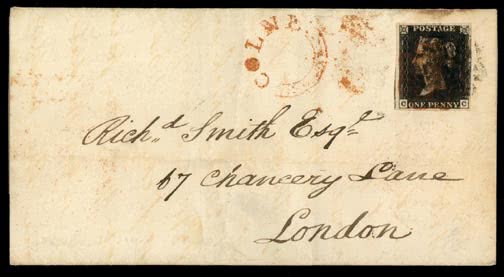 COLNE
POSTAGE
C ONE PENNY C
Rich.d Smith Esq.re
67 Chancery Lane
London